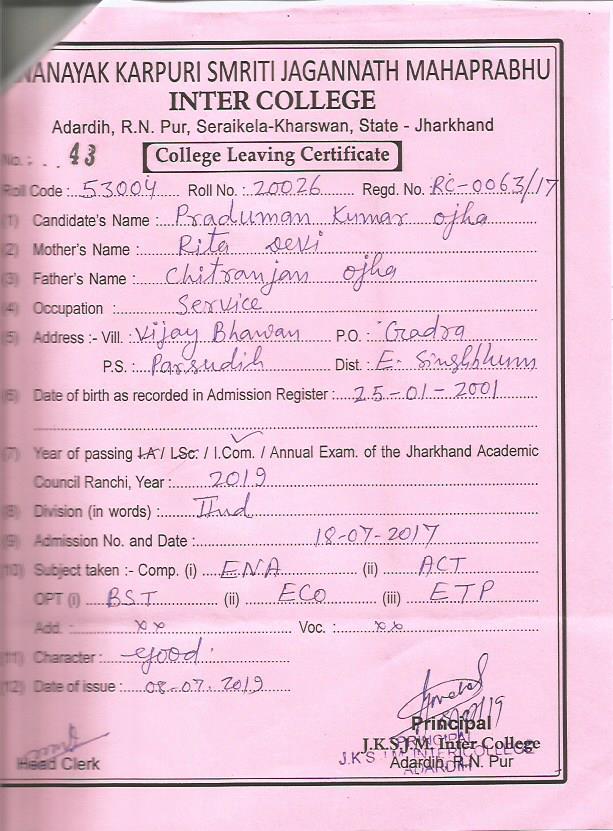 NANAYAK KARPURI SMRITI JAGANNATH MAHAPRABHU
INTER COLLEGE
Adardih, R.N. Pur, Seraikela-Kharswan, State - Jharkhand
No. : 43 College Leaving Certificate
Roll Code : 53004 Roll No. : 20026 Regd. No. RC-0063/17
(1) Candidate's Name : Praduman Kumar ojha
(2) Mother's Name : Rita Devi
(3) Father's Name : Chitranjan ojha
(4) Occupation : Service
(5) Address :- Vill. Vijay Bhawan P.O. : Gadra
P.S. : Parsudih Dist. : E. Singhbhum
(6) Date of birth as recorded in Admission Register : 25-01-2001
(7) Year of passing I.A / I.Sc. / I.Com. / Annual Exam. of the Jharkhand Academic
Council Ranchi, Year : 2019
(8) Division (in words) : IInd
(9) Admission No. and Date : 18-07-2017
(10) Subject taken :- Comp. (i) ENA (ii) ACT
OPT (i) BST (ii) ECO (iii) ETP
Add. : xx Voc. : xx
(11) Character : Good
(12) Date of issue : 08-07-2019
Principal
J.K.S.J.M. Inter College
Adardih, R.N. Pur
PRINCIPAL
J.K.S.J.M. INTER COLLEGE
ADARDIH
Head Clerk